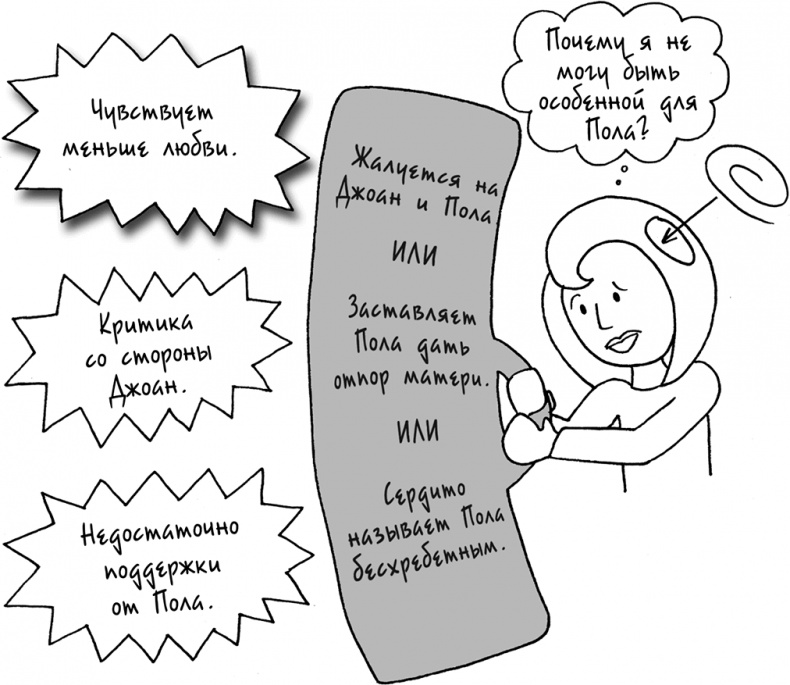 Чувствует
меньше любви.
Критика
со стороны
Джоан.
Недостаточно
поддержки
от Пола.
Жалуется на
Джоан и Пола
ИЛИ
Заставляет
Пола дать
отпор матери.
ИЛИ
Сердито
называет Пола
бесхребетным.
Почему я не
могу быть
особенной для
Пола?